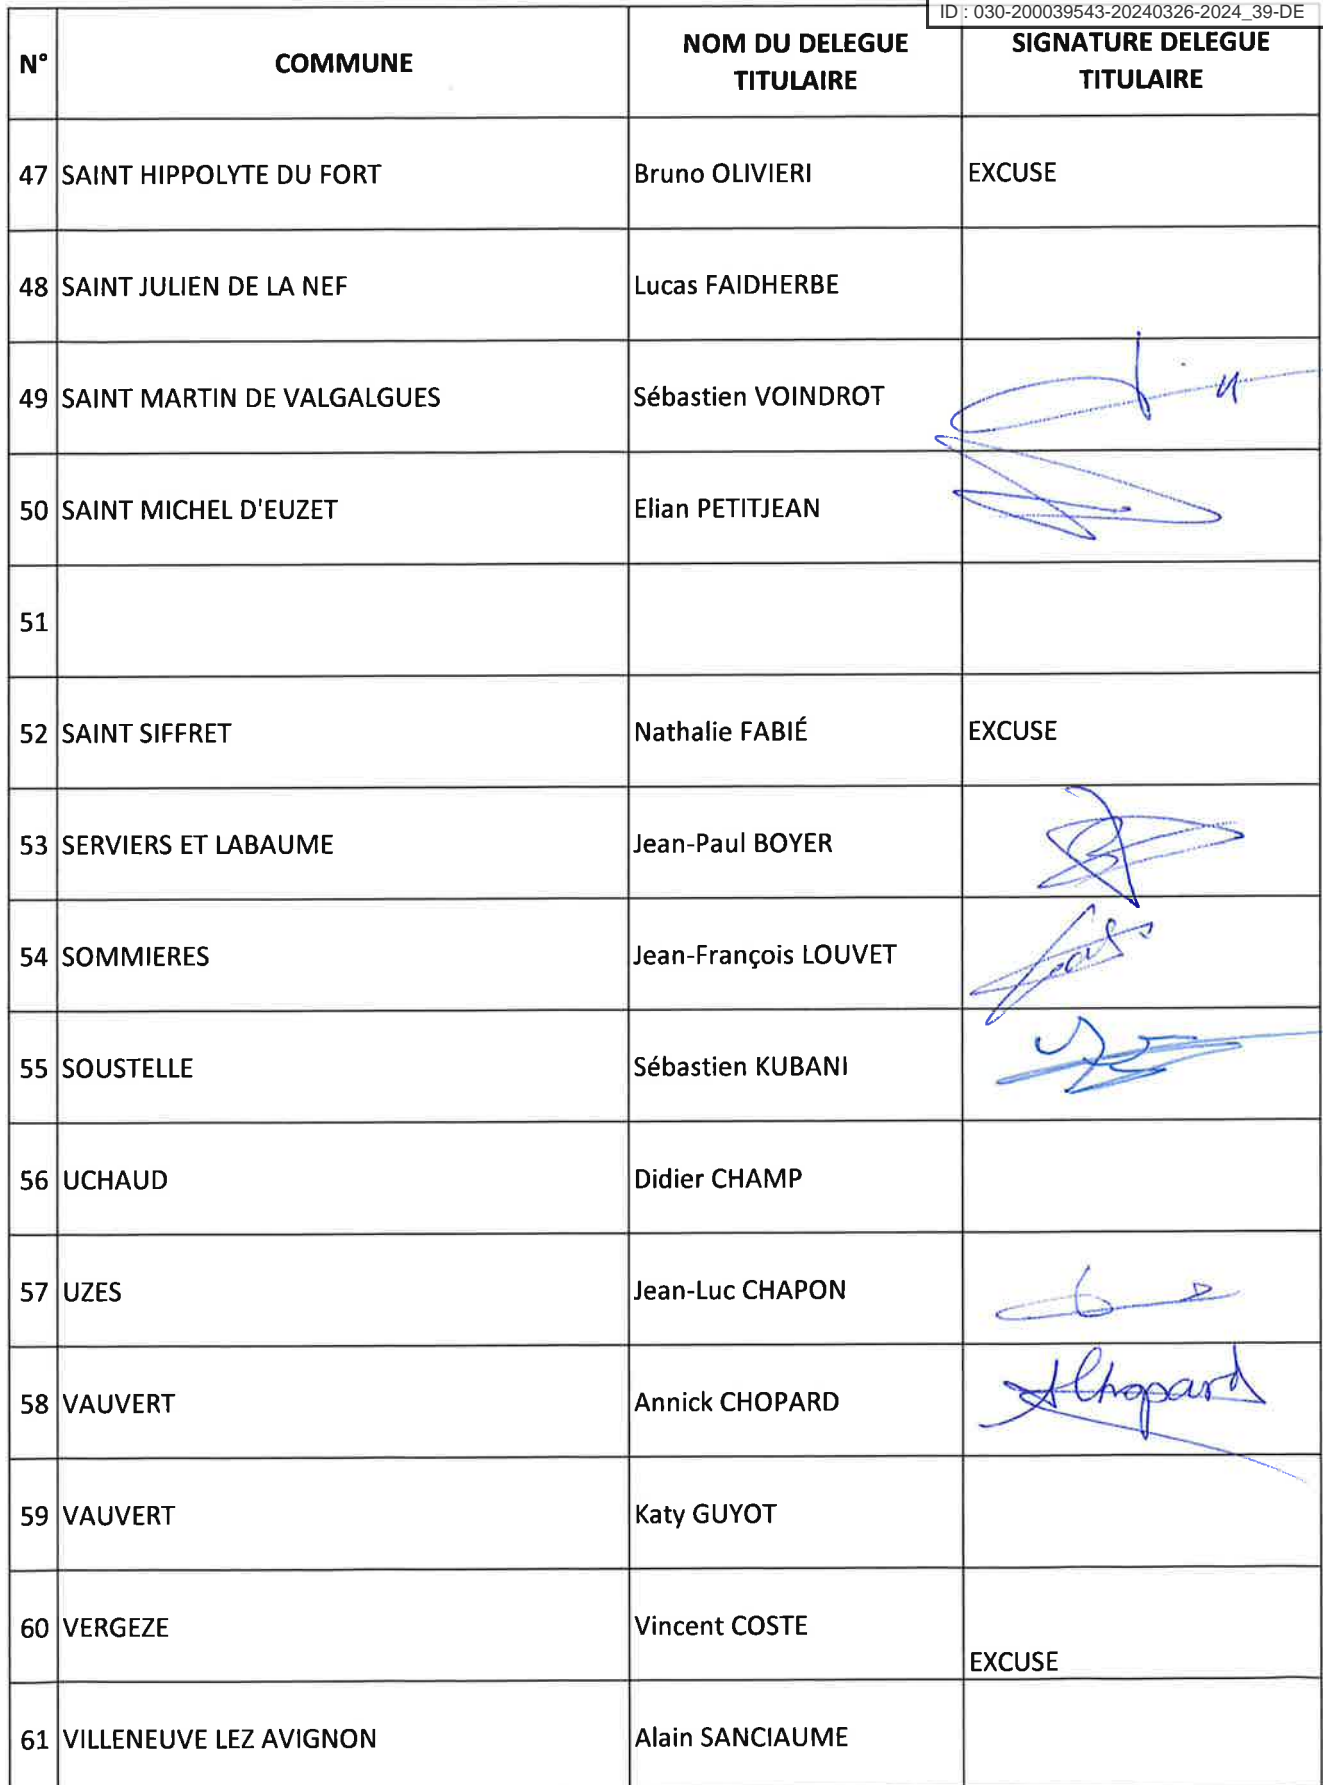 ID : 030-200039543-20240326-2024_39-DE
N° COMMUNE NOM DU DELEGUE TITULAIRE SIGNATURE DELEGUE TITULAIRE
47 SAINT HIPPOLYTE DU FORT Bruno OLIVIERI EXCUSE
48 SAINT JULIEN DE LA NEF Lucas FAIDHERBE
49 SAINT MARTIN DE VALGALGUES Sébastien VOINDROT
50 SAINT MICHEL D'EUZET Elian PETITJEAN
51
52 SAINT SIFFRET Nathalie FABIÉ EXCUSE
53 SERVIERS ET LABAUME Jean-Paul BOYER
54 SOMMIERES Jean-François LOUVET
55 SOUSTELLE Sébastien KUBANI
56 UCHAUD Didier CHAMP
57 UZES Jean-Luc CHAPON
58 VAUVERT Annick CHOPARD AChopard
59 VAUVERT Katy GUYOT
60 VERGEZE Vincent COSTE EXCUSE
61 VILLENEUVE LEZ AVIGNON Alain SANCIAUME